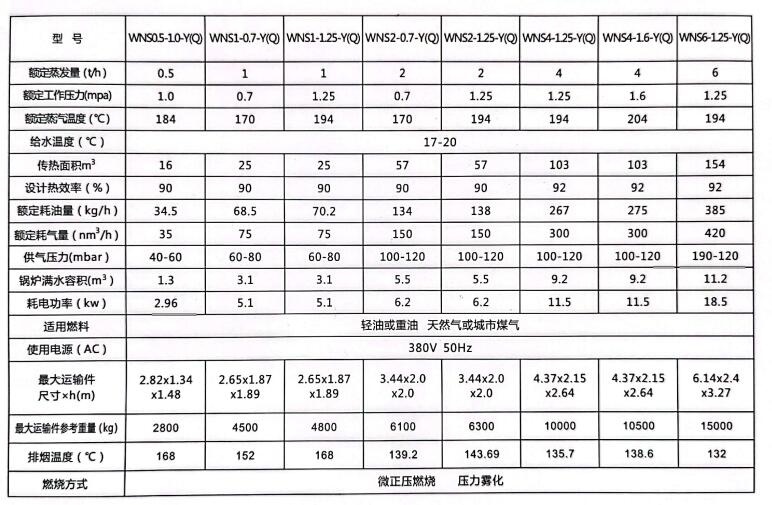 型 号 WNS0.5-1.0-Y(Q) WNS1-0.7-Y(Q) WNS1-1.25-Y(Q) WNS2-0.7-Y(Q) WNS2-1.25-Y(Q) WNS4-1.25-Y(Q) WNS4-1.6-Y(Q) WNS6-1.25-Y(Q)
额定蒸发量(t/h) 0.5 1 1 2 2 4 4 6
额定工作压力(mpa) 1.0 0.7 1.25 0.7 1.25 1.25 1.6 1.25
额定蒸汽温度(℃) 184 170 194 170 194 194 204 194
给水温度(℃) 17-20
传热面积m³ 16 25 25 57 57 103 103 154
设计热效率(%) 90 90 90 90 90 92 92 92
额定耗油量(kg/h) 34.5 68.5 70.2 134 138 267 275 385
额定耗气量(nm³/h) 35 75 75 150 150 300 300 420
供气压力(mbar) 40-60 60-80 60-80 100-120 100-120 100-120 100-120 190-120
锅炉满水容积(m³) 1.3 3.1 3.1 5.5 5.5 9.2 9.2 11.2
耗电功率(kw) 2.96 5.1 5.1 6.2 6.2 11.5 11.5 18.5
适用燃料 轻油或重油 天然气或城市煤气
使用电源(AC) 380V 50Hz
最大运输件 2.82x1.34 2.65x1.87 2.65x1.87 3.44x2.0 3.44x2.0 4.37x2.15 4.37x2.15 6.14x2.4
尺寸×h(m) x1.48 x1.89 x1.89 x2.0 x2.0 x2.64 x2.64 x3.27
最大运输件参考重量(kg) 2800 4500 4800 6100 6300 10000 10500 15000
排烟温度(℃) 168 152 168 139.2 143.69 135.7 138.6 132
燃烧方式 微正压燃烧 压力雾化